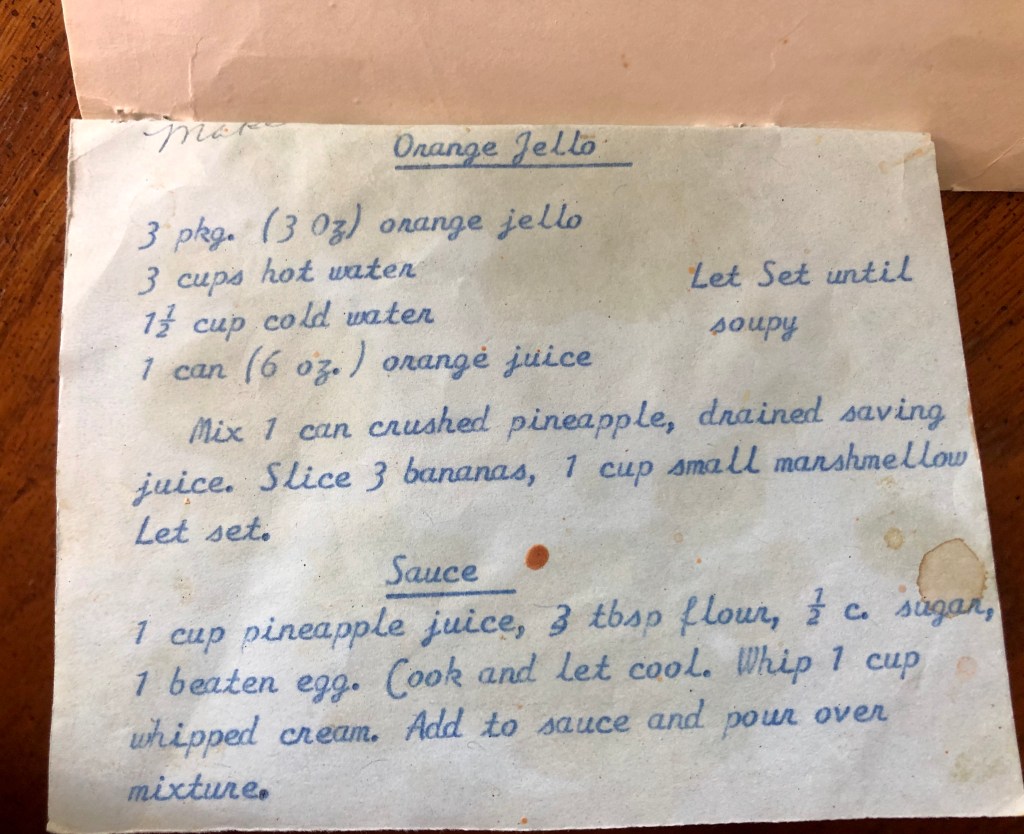 Make
Orange Jello
3 pkg. (3 Oz) orange jello
3 cups hot water
1½ cup cold water
1 can (6 oz.) orange juice
Let Set until
soupy
Mix 1 can crushed pineapple, drained saving
juice. Slice 3 bananas, 1 cup small marshmellow
Let set.
Sauce
1 cup pineapple juice, 3 tbsp flour, ½ c. sugar,
1 beaten egg. Cook and let cool. Whip 1 cup
whipped cream. Add to sauce and pour over
mixture.